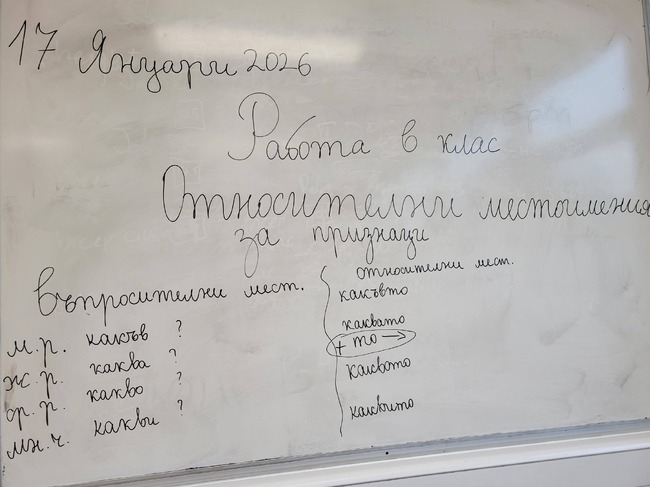 17 Януари 2026
Работа в клас
Относителни местоимения
за признаци
Въпросителни мест.
м.р. какъв ?
ж.р. каква ?
ср.р. какво ?
мн.ч. какви ?
относителни мест.
какъвто
каквато
+ то →
каквото
каквито